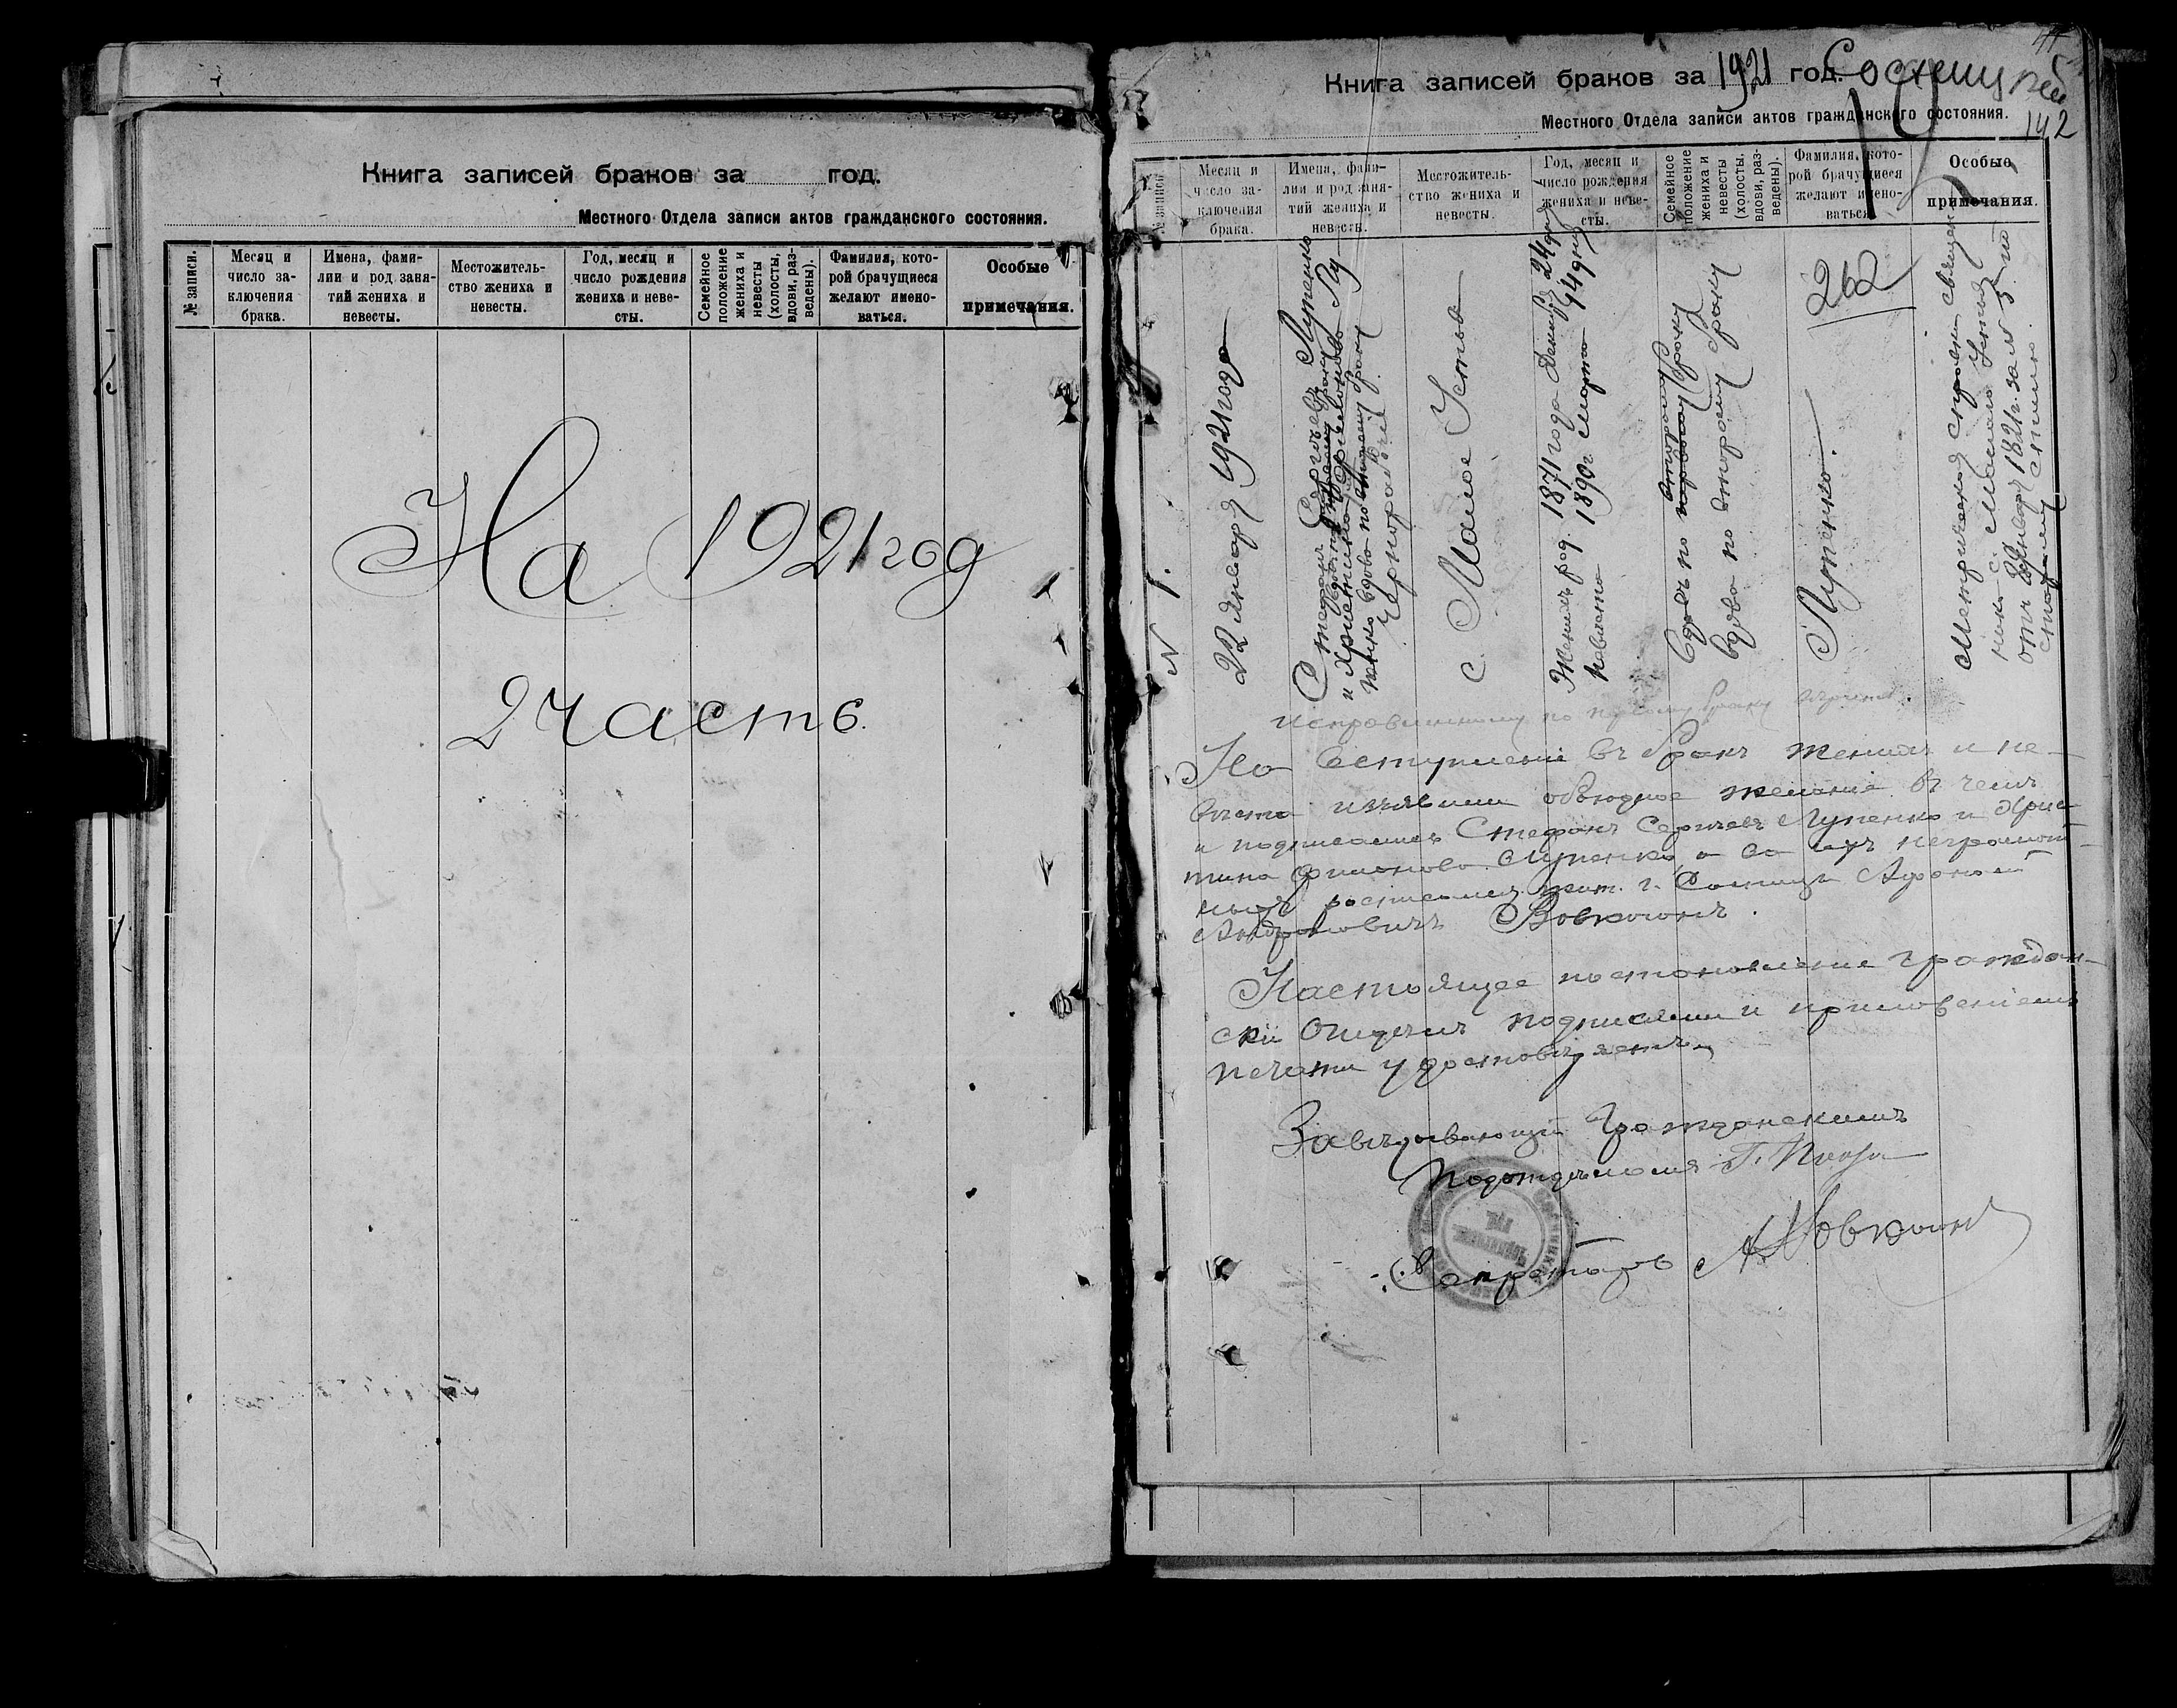 Книга записей браков за год.
Местного Отдела записи актов гражданского состояния.
№ записи.
Месяц и
число за-
ключения
брака.
Имена, фами-
лии и род заня-
тий жениха и
невесты.
Местожитель-
ство жениха и
невесты.
Год, месяц и
число рождения
жениха и неве-
сты.
Семейное
положение
жениха и
невесты
(холосты,
вдовы, раз-
ведены).
Фамилия, кото-
рой брачущиеся
желают имено-
ваться.
Особые
примечания.
На 1921 год
2 часть.
Книга записей браков за 1921 год.
142
Местного Отдела записи актов гражданского состояния.
№ записи
Месяц и
число за-
ключения
брака.
Имена, фами-
лии и род заня-
тий жениха и
невесты.
Местожитель-
ство жениха и
невесты.
Год, месяц и
число рождения
жениха и неве-
сты.
Семейное
положение
жениха и
невесты
(холосты,
вдовы, раз-
ведены).
Фамилия, кото-
рой брачущиеся
желают имено-
ваться.
Особые
примечания.
N 1.
22 Января 1921 года
Стефанъ Сергеевъ Лупенко
и Христина Филонова Лу-
пенко вдова по браку
Чернорабочій
с. Малое Устье
Женихъ род. 1871 года Декабря 24 дня
невеста 1890 г Марта 14 дня
Вдовъ по второму браку
вдова по второму браку
262
Лупенко.
Метрическая справка священ-
ника с. Малого Устья
отъ 20 Января 1821 г. за № 5 по
старому стилю.
исправленному по первому браку
На вступленіе въ бракъ женихъ и не-
веста изъявили обоюдное желаніе въ чемъ
и подписались Стефанъ Сергеевъ Лупенко и Хрис-
тина Филонова Лупенко, а за ихъ неграмот-
ныхъ росписался жит. г. Сосницы Афанасій
Андреевичъ Вовкогонъ.
Настоящее постановленіе граждан-
скій отделъ подписями и приложеніемъ
печати удостоверяетъ
Заведывающій Гражданскимъ
Подотделомъ
Секретарь АВовкогон